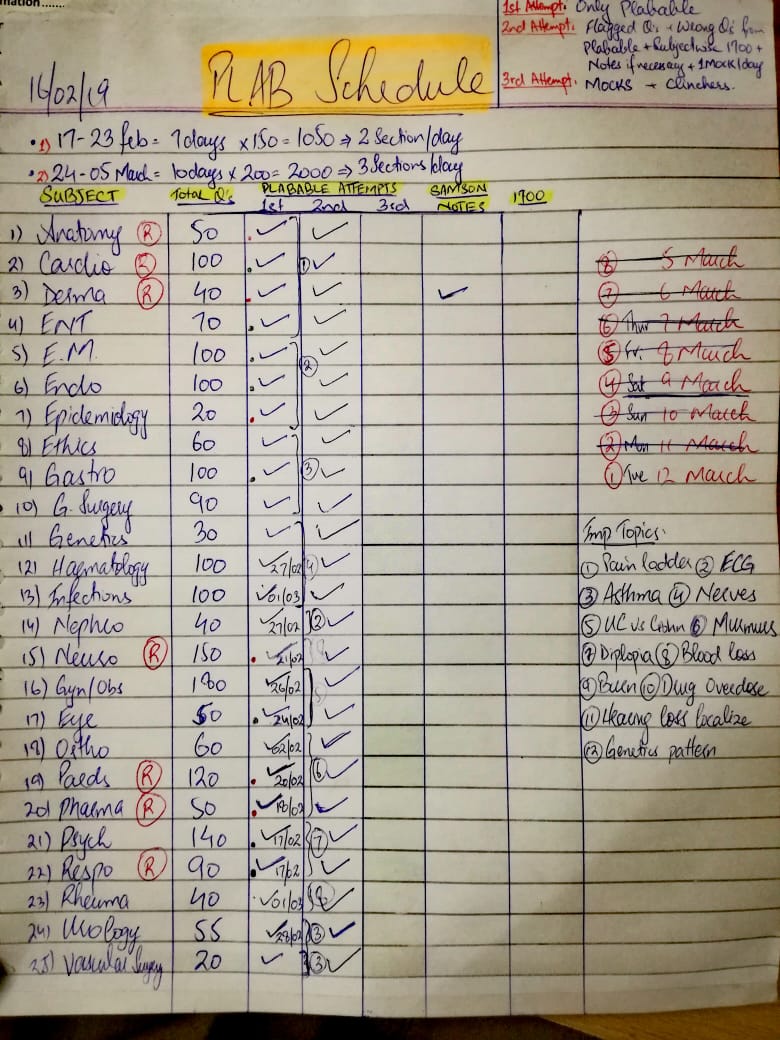 mation......
1st Attempt: Only Plabable
2nd Attempt: Flagged Q's + Wrong Q's from
Plabable + Subjectwise 1700 +
Notes if necessary + 1 Mock/day
3rd Attempt: Mocks + Clinchers.
16/02/19
PLAB Schedule
• 1) 17-23 feb = 7days × 150 = 1050 ⇒ 2 Section/day
• 2) 24-05 March = 10days × 200 = 2000 ⇒ 3 Sections/day
SUBJECT Total Q's PLABABLE ATTEMPTS SAMSON NOTES 1700
1st 2nd 3rd
1) Anatomy R 50 ✓ ✓
2) Cardio R 100 ✓ 1 ✓
3) Derma R 40 ✓ ✓ ✓
4) ENT 70 ✓ ✓
5) E.M. 100 ✓ 2 ✓
6) Endo 100 ✓ ✓
7) Epidemiology 20 ✓ ✓
8) Ethics 60 ✓ ✓
9) Gastro 100 ✓ 3 ✓
10) G. Surgery 90 ✓ ✓
11) Genetics 30 ✓ ✓
12) Haematology 100 ✓ 27/02 4 ✓
13) Infections 100 ✓ 01/03 ✓
14) Nephro 40 ✓ 27/02 2 ✓
15) Neuro R 150 ✓ 21/02 ✓
16) Gyn/Obs 180 ✓ 26/02 5 ✓
17) Eye 50 ✓ 24/02 ✓
18) Ortho 60 ✓ 02/02 ✓
19) Paeds R 120 ✓ 20/02 6 ✓
20) Pharma R 50 ✓ 18/02 ✓
21) Psych 140 ✓ 17/02 7 ✓
22) Respo R 90 ✓ 17/02 ✓
23) Rheuma 40 ✓ 01/03 8 ✓
24) Urology 55 ✓ 28/02 3 ✓
25) Vascular Surgery 20 ✓ 3 ✓
8 5 March
7 6 March
6 Thur 7 March
5 Fri 8 March
4 Sat 9 March
3 Sun 10 March
2 Mon 11 March
1 Tue 12 March
Imp Topics:
1 Pain ladder 2 ECG
3 Asthma 4 Nerves
5 UC vs Crohn 6 Murmurs
7 Diplopia 8 Blood loss
9 Burn 10 Drug Overdose
11 Hearing loss localize
12 Genetics pattern